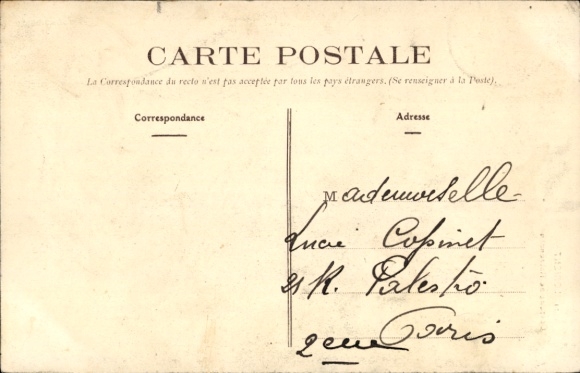 CARTE POSTALE
La Correspondance du recto n'est pas acceptée par tous les pays étrangers. (Se renseigner à la Poste).
Correspondance
Adresse
Mademoiselle
Lucie Copinet
21 R. Palestro
Paris
2eme